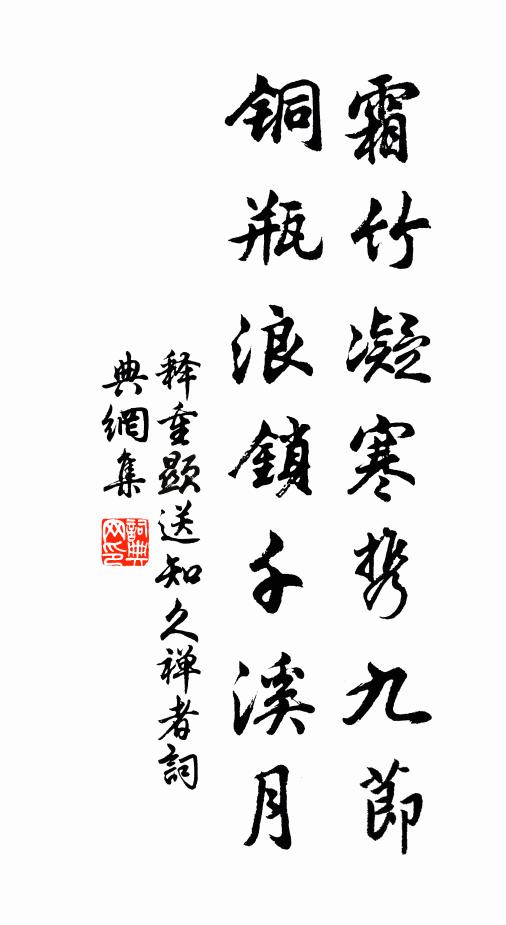 霜竹凝寒携九節
铜瓶浪鎖千溪月
释重顯送知久禅者詞
典網集
詞典网印